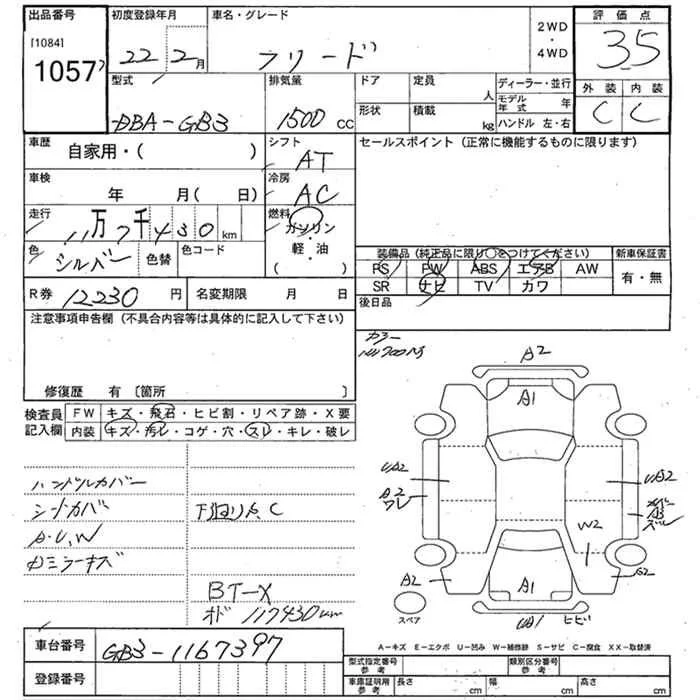 出品番号
[1084]
1057
初度登録年月
22年 2月
車名・グレード
フリード
2WD
・
4WD
評価点
3.5
外装 内装
C C
型式
DBA-GB3
排気量
1500 CC
ドア 定員 人
形状 積載 kg
ディーラー・並行
モデル年式 年
ハンドル 左・右
車歴 自家用・( )
シフト AT
セールスポイント (正常に機能するものに限ります)
車検 年 月( 日)
冷房 AC
走行 11万7千430km
燃料 ガソリン
・
軽・油
( )
色 シルバー 色替 色コード
装備品 (純正品に限り○をつけてください) 新車保証書
PS PW ABS エアB AW 有・無
SR ナビ TV カワ
後日品
R券 12230円 名変期限 月 日
注意事項申告欄 (不具合内容等は具体的に記入して下さい)
修復歴 有 〔箇所 〕
検査員記入欄
FW キズ・飛石・ヒビ割・リペア跡・X要
内装 キズ・汚レ・コゲ・穴・スレ・キレ・破レ
ハンドルカバー
シートカバー
A・U,W
下廻りS,C
BT-X
オド 117430km
A2
A1
UA2
A2
ワレ
UA2
W2
A2
A1
UA1 ヒビ
スペア
車台番号 GB3-1167397
登録番号
A-キズ E-エクボ U-凹み W-補修跡 S-サビ C-腐食 XX-取替済
型式指定番号 参考
類別区分番号 参考
車庫証明用 参考 長さ cm 幅 cm 高さ cm